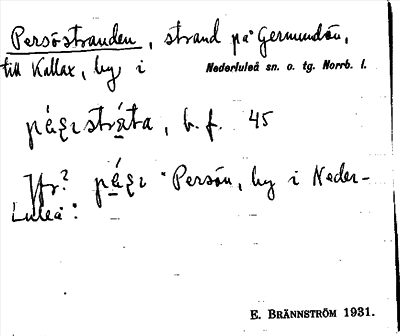 Persöstranden, strand på Germundön,
till Kallax, by i Nederluleå sn. o. tg. Norrb. l.
, b.f. 45
Jfr? "Persön, by i Neder-
Luleå".
E. BRÄNNSTRÖM 1931.